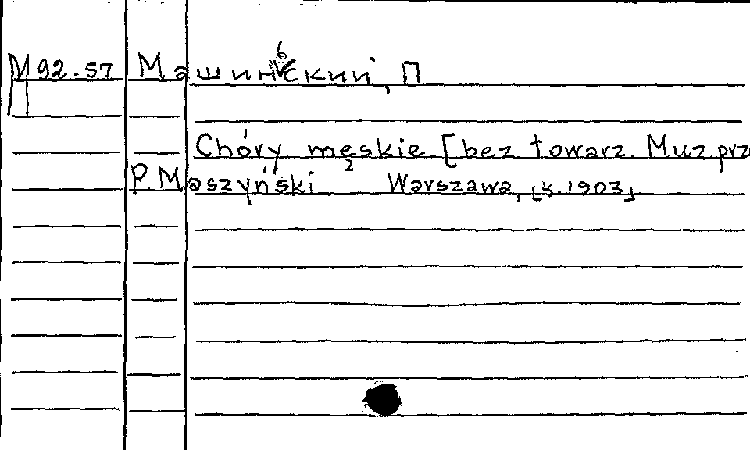 М92-57 Машиньский, П
П
Chóry męskie [bez towarz. Muz. prz
P. Maszyński Warszawa, [s. 1903]